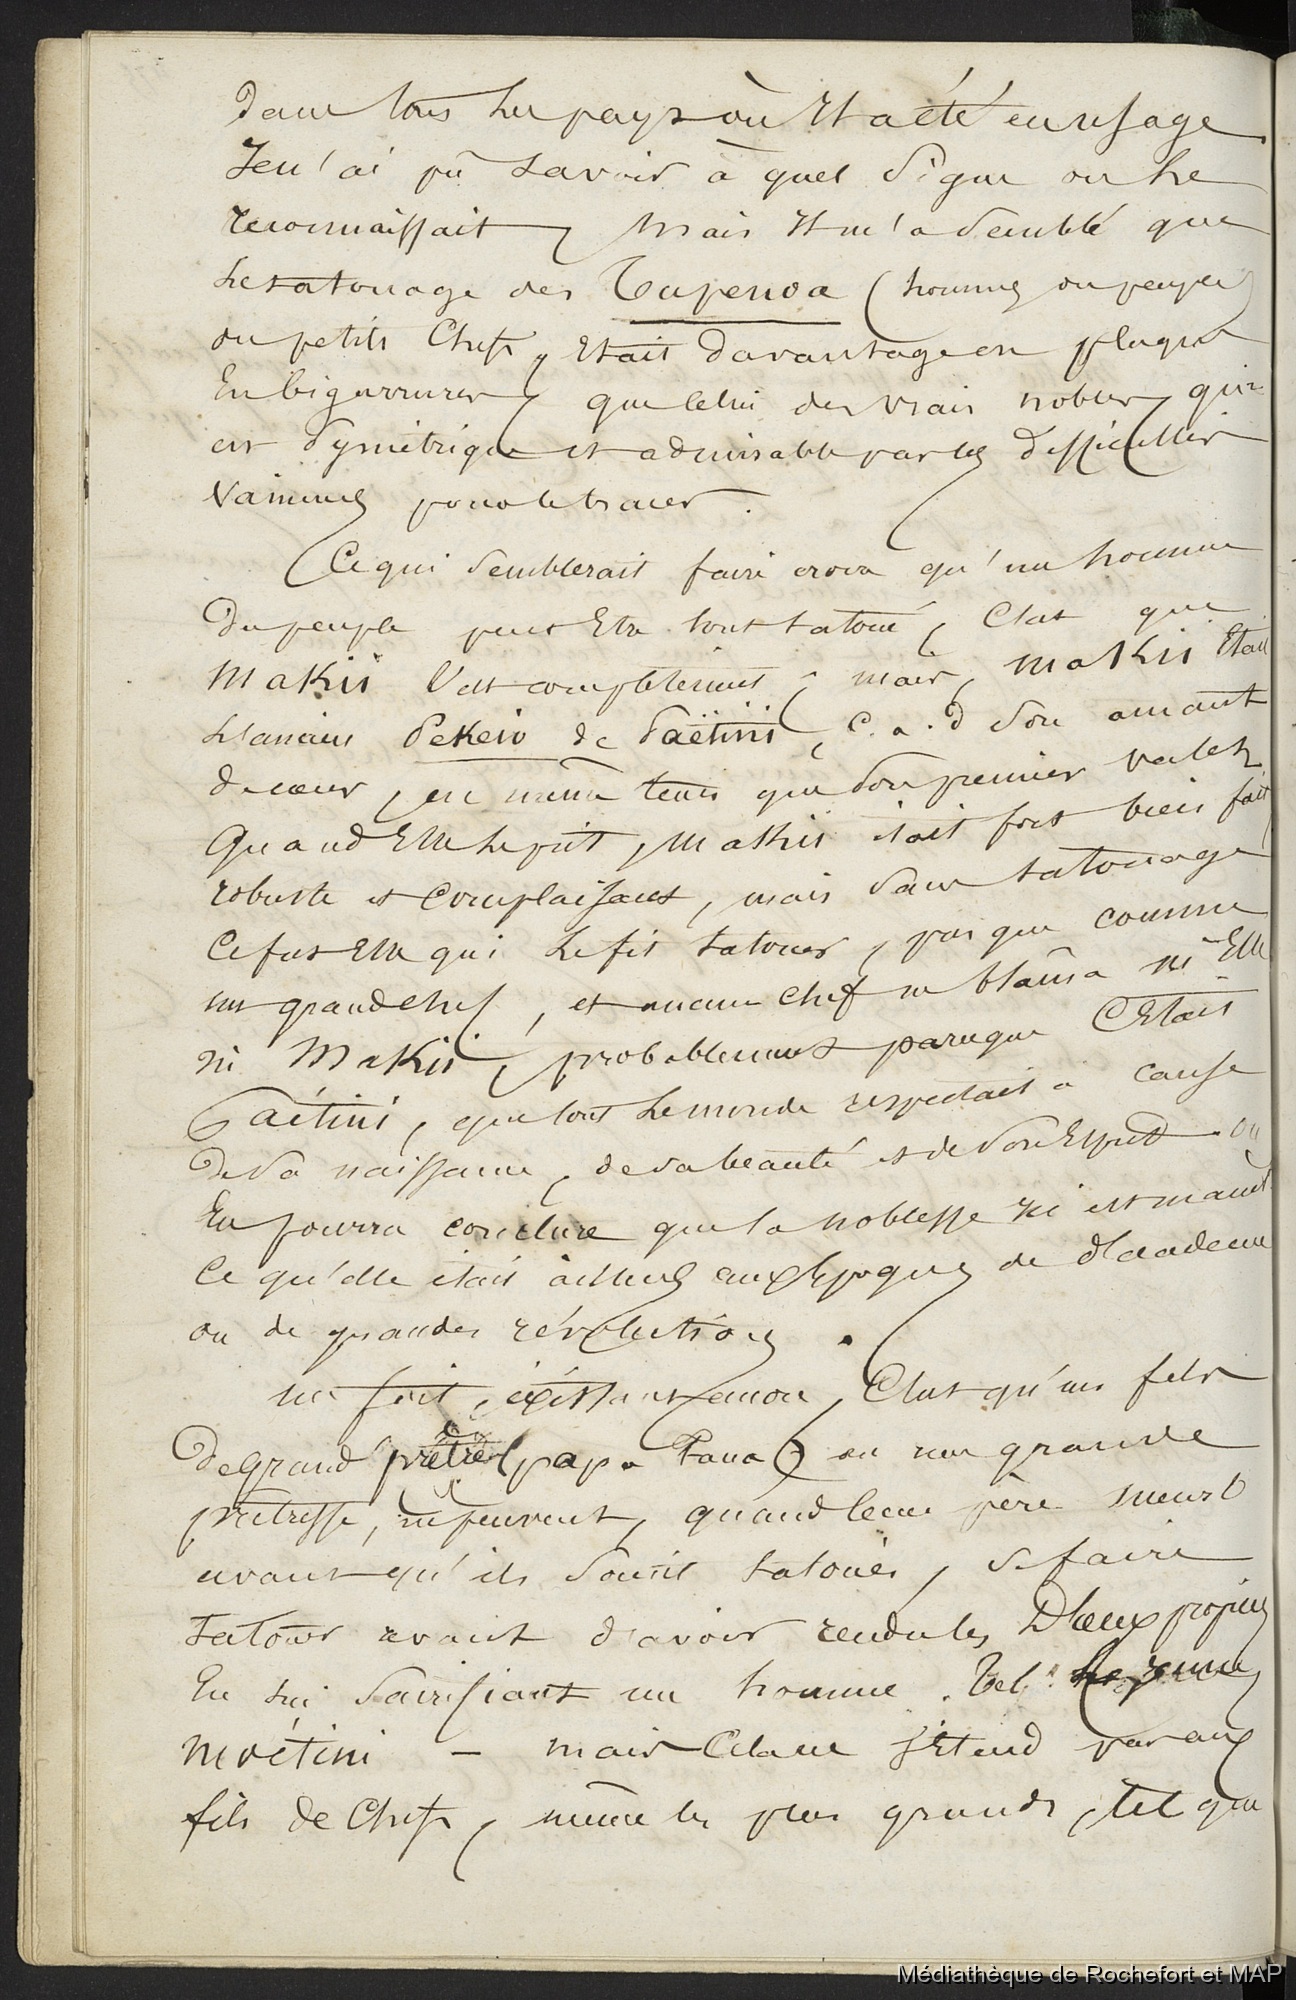 dans tous les pays où Il a été en usage
Je n'ai pû savoir à quel signe on le
reconnaissait, Mais Il m'a semblé que
le tatouage des Tupenoa (hommes du peuple)
ou petits Chefs, Etait davantage en plaques
En bigarrures, que celui des vrais nobles, qui
est symétrique et admirable par les difficultés
Vaincues pour le tracer.
Ce qui semblerait faire croire qu'un homme
Du peuple peut Etre tout tatoué, C'est que
Makii l'est complètement, mais, Makii Etait
l'ancien Pekeio de Vaëtini, c. a. d son amant
de cœur, en même tems que son premier valet.
Quand Elle le prit, Makii était fort bien fait
robuste et complaisant, mais sans tatouage
Ce fut Elle qui le fit tatouer, presque comme
un grand chef, et aucun Chef ne blâma ni Elle
ni Makii, probablement parceque C'Etait
Vaétini, que tout le monde respectait à cause
De Sa naissance, de sa beauté et de Son Esprit. On
En pourra conclure que la noblesse ici est maint.
Ce qu'elle était ailleurs aux Epoques de décadence
ou de grandes révolutions.
un fait, éxistant encore, C'est qu'un fils
De grand prêtre (papa Taua) ou une grande
prêtresse, ne peuvent, quand leur père meurt
avant qu'ils soient tatoués, se faire
Tatouer avant d'avoir rendu les Dieux propices
En lui sacrifiant un homme. Tel le jeune
Moétini – mais Cela ne s'Etend pas aux
fils de Chefs, même les plus grands, tel que
Médiathèque de Rochefort et MAP